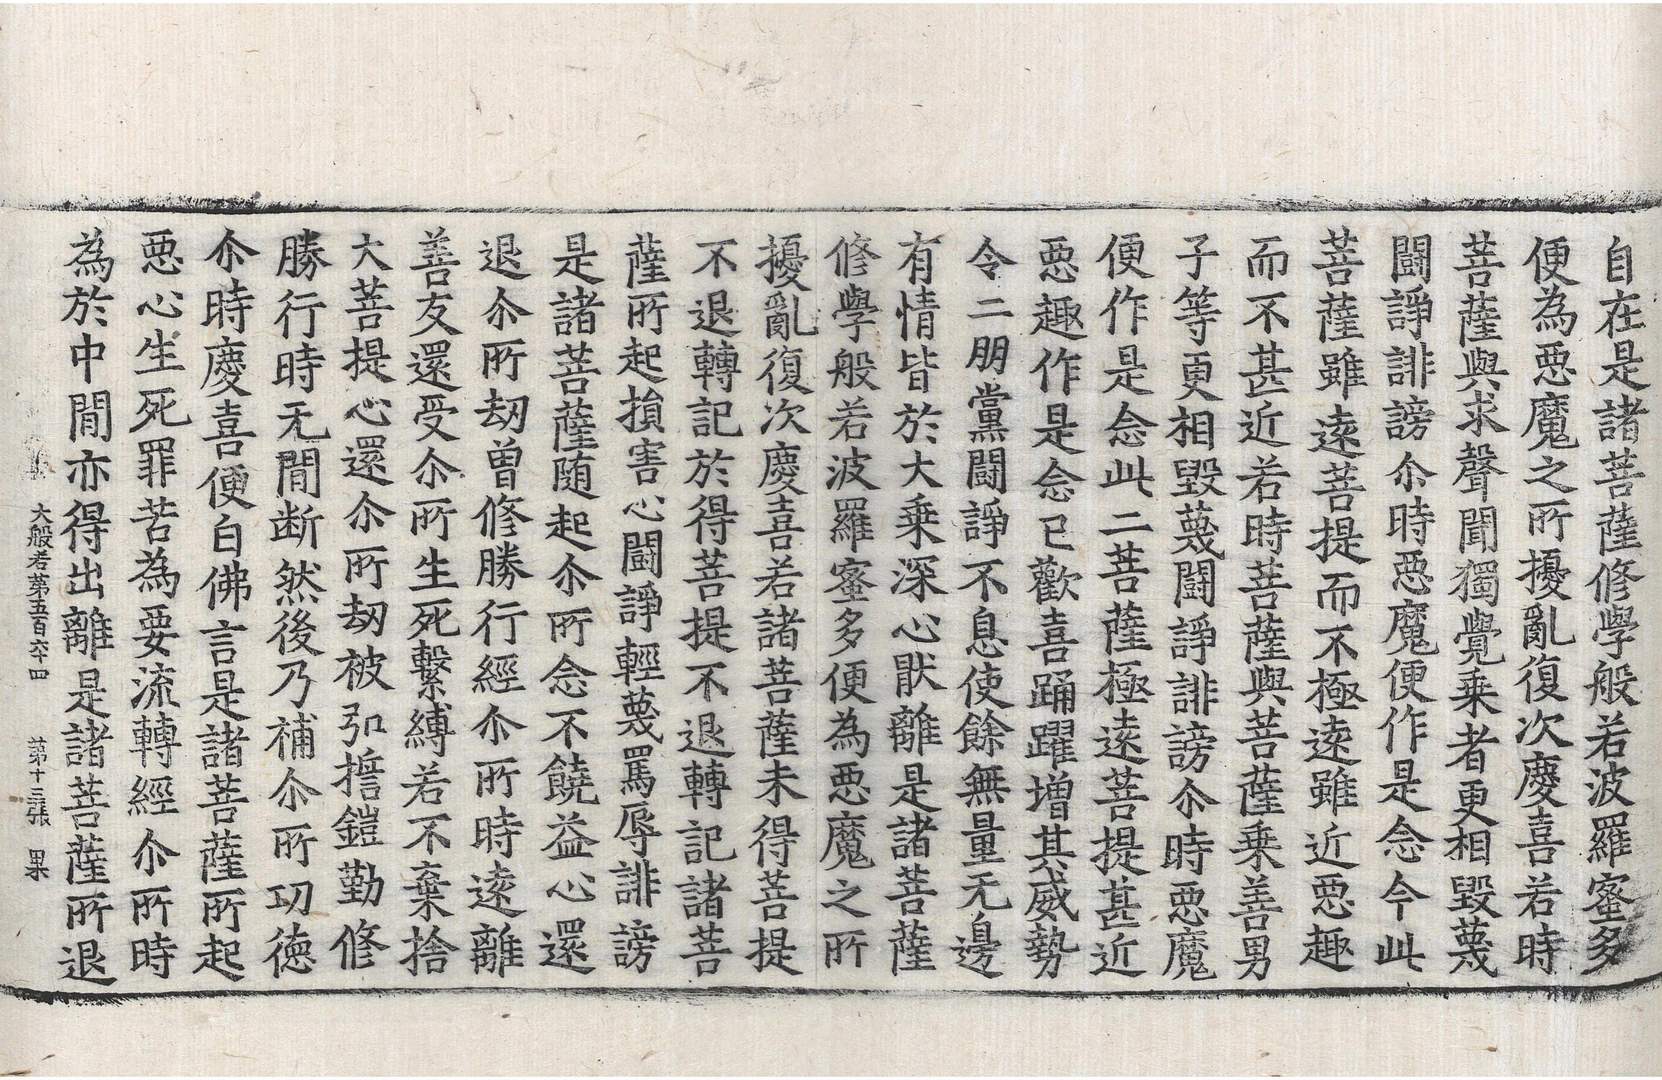 自在是諸菩薩修學般若波羅蜜多
便為惡魔之所擾亂復次慶喜若時
菩薩與求聲聞獨覺乗者更相毀蔑
鬪諍誹謗尒時惡魔便作是念今此
菩薩雖遠菩提而不極遠雖近惡趣
而不甚近若時菩薩與菩薩乗善男
子等更相毀蔑鬪諍誹謗尒時惡魔
便作是念此二菩薩極遠菩提甚近
惡趣作是念已歡喜踊躍增其威勢
令二朋黨鬪諍不息使餘無量无邊
有情皆於大乗深心猒離是諸菩薩
修學般若波羅蜜多便為惡魔之所
擾亂復次慶喜若諸菩薩未得菩提
不退轉記於得菩提不退轉記諸菩
薩所起損害心鬪諍輕蔑罵辱誹謗
是諸菩薩随起尒所念不饒益心還
退尒所劫曽修勝行經尒所時遠離
善友還受尒所生死繫縛若不棄捨
大菩提心還尒所劫被弘誓鎧勤修
勝行時无間断然後乃補尒所㓛徳
尒時慶喜便白佛言是諸菩薩所起
惡心生死罪苦為要流轉經尒所時
為於中間亦得出離是諸菩薩所退
大般若第五百六十四 第十三張 果